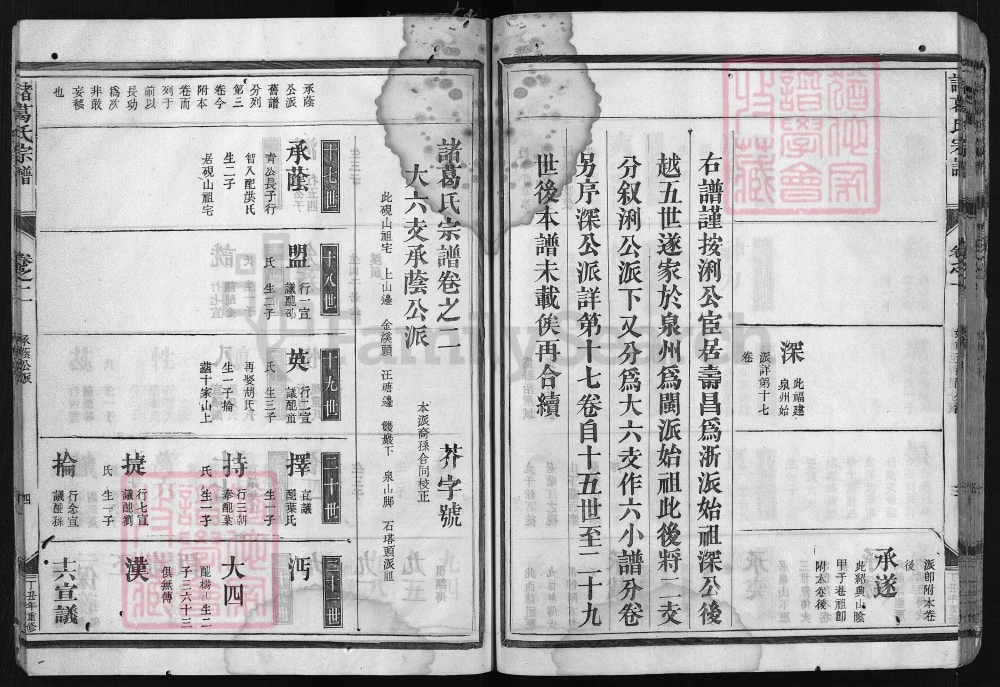 諸葛氏宗譜
卷之一
深
此福建
泉州始
派詳第十七
卷
承遂
派即附本卷
後
此紹興山陰
甲子巷祖即
附本卷後
右譜謹按浰公宦居壽昌爲浙派始祖深公後
越五世遂家於泉州爲閩派始祖此後將二支
分叙浰公派下又分爲大六支作六小譜分卷
另序深公派詳第十七卷自十五世至二十九
世後本譜未載俟再合續
諸葛氏宗譜卷之二
芥字號
大六支承蔭公派
本派裔孫合同校正
此硯山祖宅 上山邊 金溪頭 汪塘邊 巖下 泉山脚 石塔頭派祖
承蔭
公派
舊譜
分列
第三
卷今
附本
卷而
列于
前以
長幼
爲次
非敢
妄移
也
十七世
承蔭
青公長子行
智八配洪氏
生二子
居硯山祖宅
十八世
盟
行一宣
議配邵
氏生二子
十九世
英
行二宣
議配
氏生三子
再娶胡氏
生一子掄
塟十家山上
二十世
擇
宣議
配葉氏
生一子
持
行三朝
奉配葉
氏生一子
捷
行七宣
議配鄭
氏生一子
掄
行念宣
議配孫
二十一世
沔
大四
配楊氏生二
子三六十三
俱無傳
漢
十六宣議
諸葛氏宗譜
卷之二
承蔭公派
四
丁丑年重修
FamilySearch